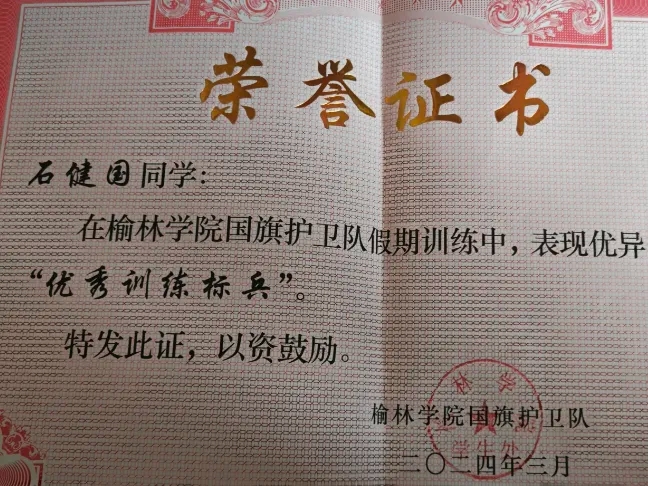 荣誉证书
石健国同学:
在榆林学院国旗护卫队假期训练中，表现优异
“优秀训练标兵”。
特发此证，以资鼓励。
林学
学生处
榆林学院国旗护卫队
二〇二四年三月